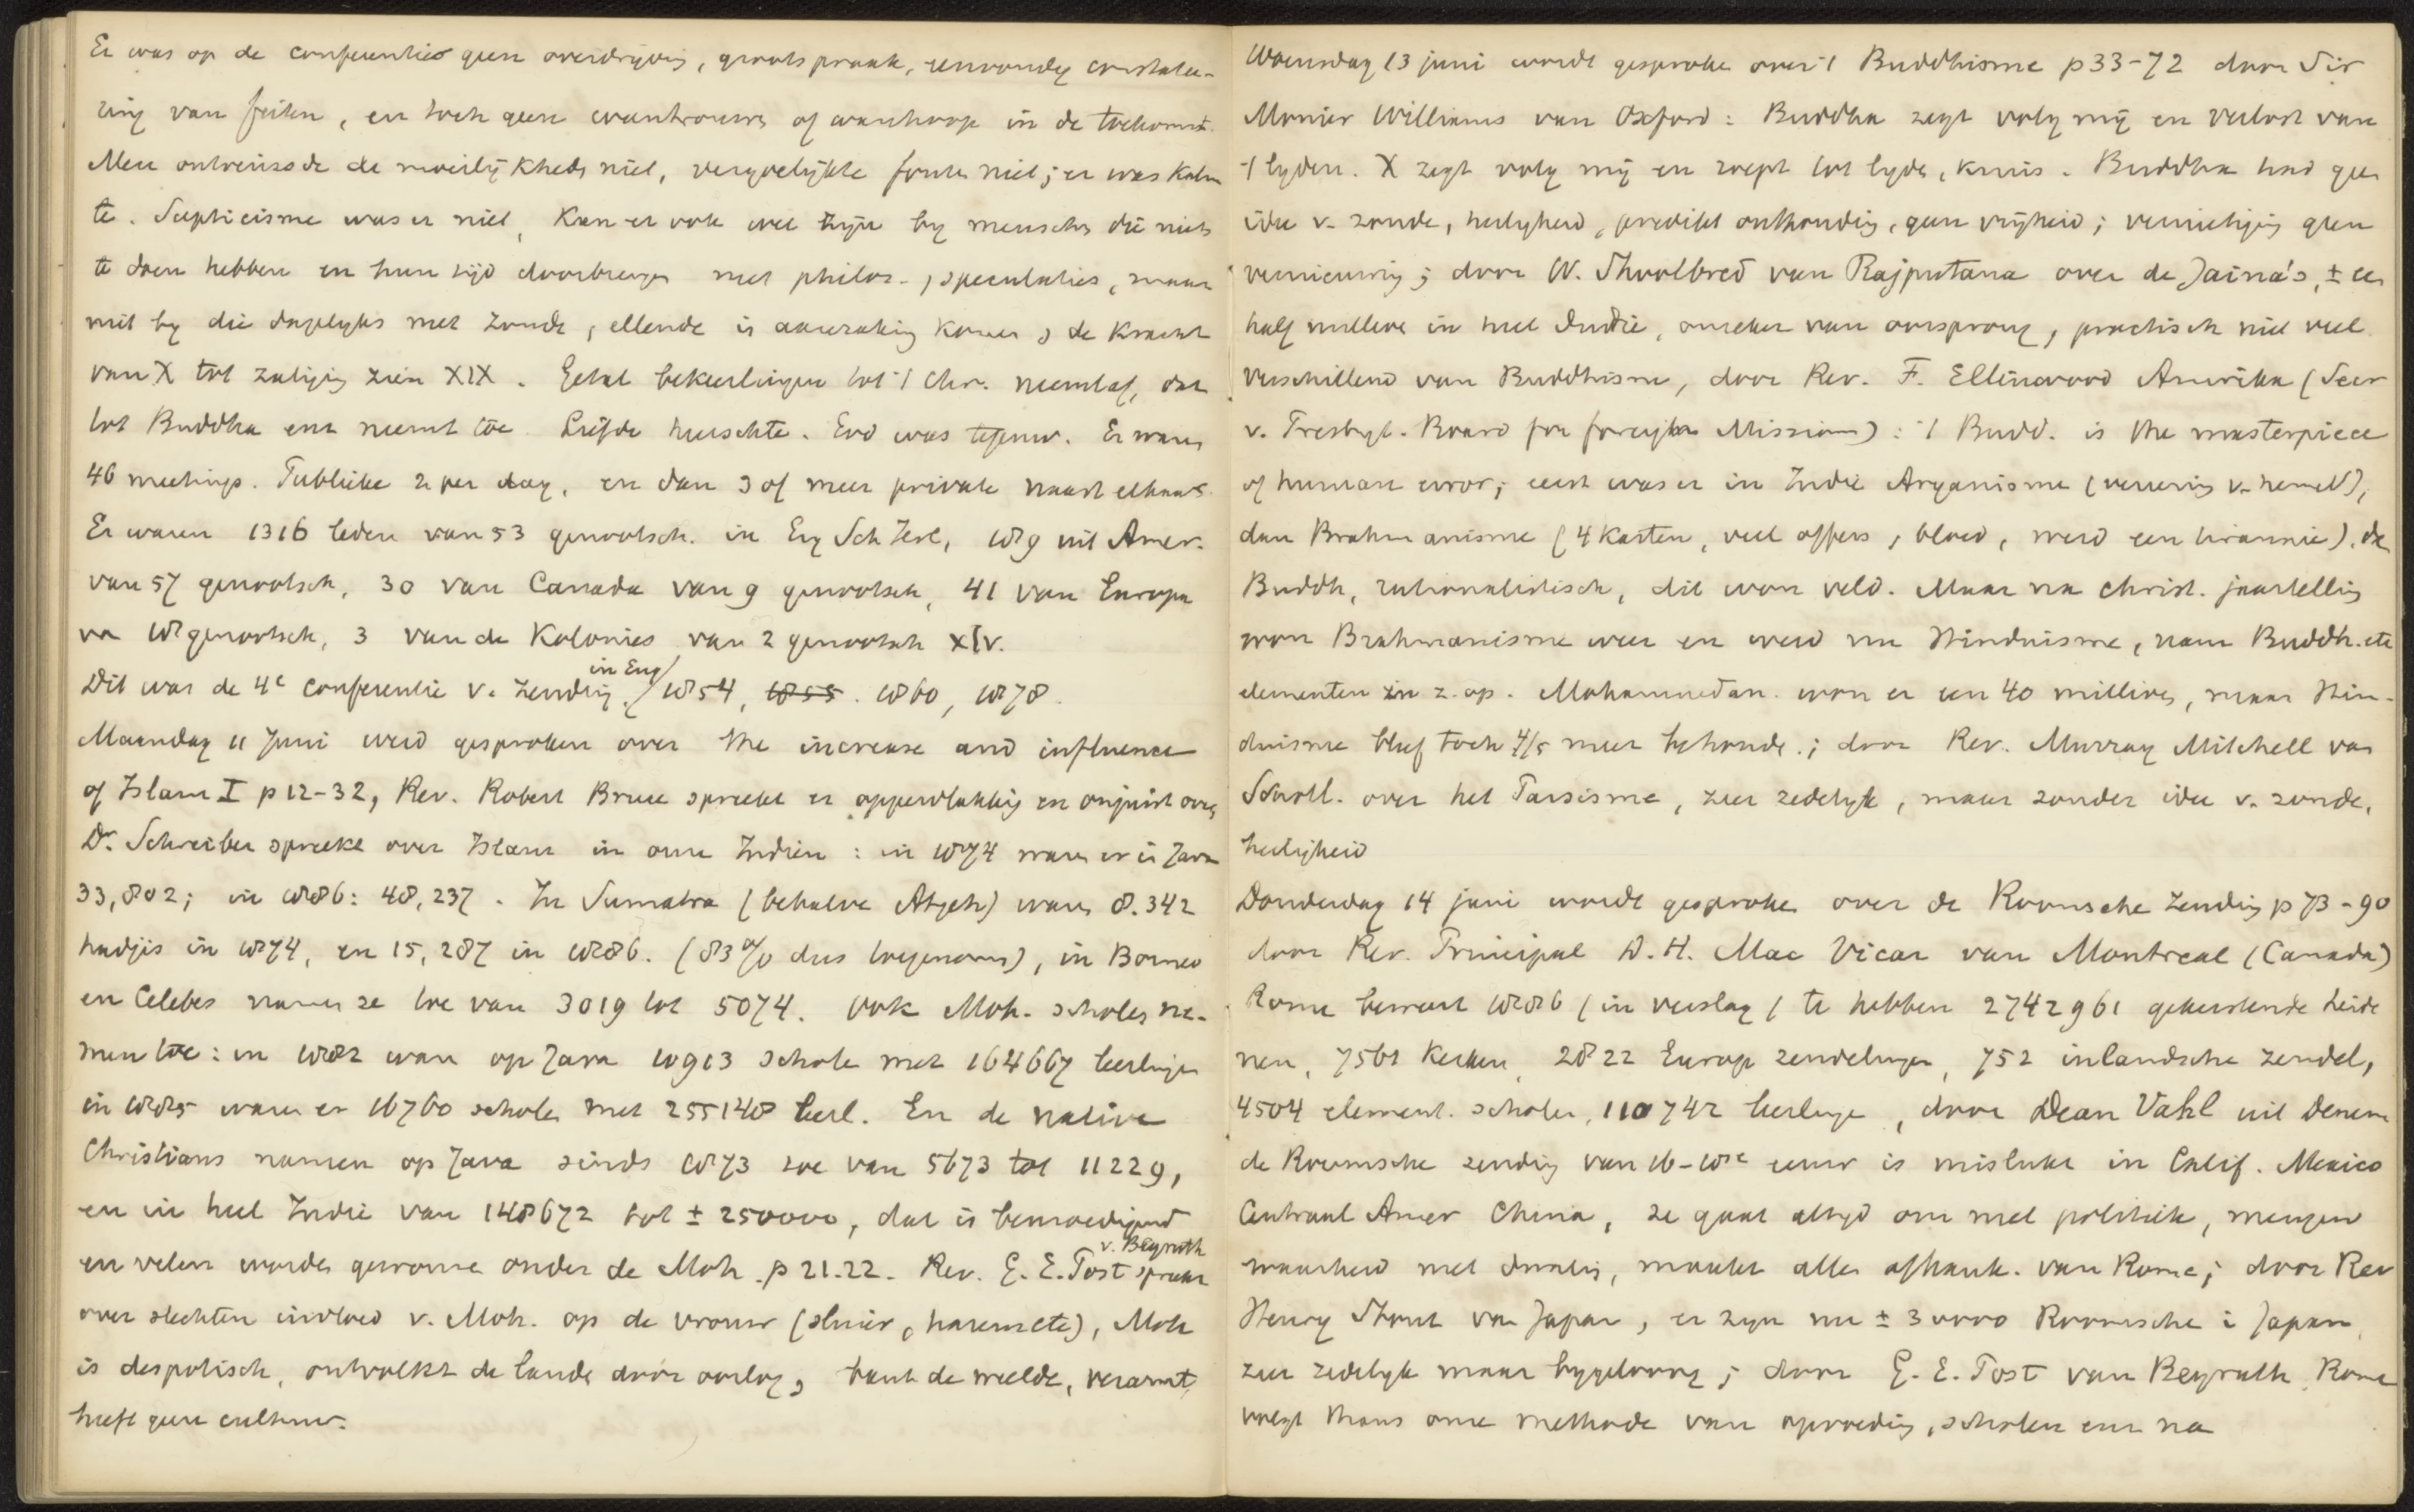 Er was op de conferenties geen overdrijving, grootspraak, eenvoudig constatee-
ring van feiten, en toch geen wantrouwen of wanhoop in de toekomst.
Men ontveinsde de moeilijkheds niet, vergoelijkte fouten niet; er was kalm
te. Scepticisme was er niet, kan er ook wel zijn by menschen die niets
te doen hebben en hun tijd doorbrengen met philos., speculaties, maar
niet by die dagelyks met zonde, ellende in aanraking komen, de kracht
van X tot zaliging zien XIX. Getal bekeerlingen tot 't Chr. neemt af, dat
tot Buddha enz neemt toe. Liefde heerschte. God was tegenw. Er waren
46 meetings. Publieke 2 per dag, en dan 3 of meer private naast elkaar.
Er waren 1316 leden van 53 genootsch. in Eng Sch Ierl, 189 uit Amer.
van 57 genootsch, 30 van Canada van 9 genootsch, 41 van Europa
van 18 genootsch, 3 van de Kolonies van 2 genootsch XIV.
Dit was de 4e conferentie v. zending in Eng/ 1854, 1855. 1860, 1878.
Maandag 11 Juni werd gesproken over the increase and influence
of Islam I p 12-32, Rev. Robert Bruce spreekt er oppervlakkig en onjuist over,
Dr. Schreiber spreekt over Islam in onze Indien: in 1874 waren er in Java
33,802; in 1886: 48,237. In Sumatra (behalve Atjeh) waren 8.342
hadjis in 1874, en 15,287 in 1886. (83% dus toegenomen), in Borneo
en Celebes namen ze toe van 3019 tot 5074. Ook Moh. scholen na-
men toe: in 1882 waren op Java 10913 schole met 164667 leerlingen
in 1885 waren er 16760 scholen met 255148 leerl. En de native
Christians namen op Java sinds 1873 toe van 5673 tot 11229,
en in heel Indie van 148672 tot ± 250000, dat is bemoedigend
en velen worden gewonnen onder de Moh. p 21.22. Rev. G. E. Post v. Beyruth spreekt
over slechten invloed v. Moh. op de vrouw (sluier, harem etc), Moh
is despotisch, ontvolkt de landen door oorlog, bant de weelde, verarmt,
heeft geen cultuur.
Woensdag 13 juni wordt gesproken over 't Buddhisme p 33-72 door Sir
Monier Williams van Oxford: Buddha zegt volg mij en verlost van
't lyden. X zegt volg mij en roept tot lyden, kruis. Buddha had geen
idee v. zonde, heiligheid, predikt onthouding, geen vrijheid; vernietiging geen
vernieuwing; door W. Shoolbred van Rajputana over de Jaina's, ± een
half millioen in heel Indie, onzeker van oorsprong, practisch niet veel
verschillend van Buddhisme, door Rev. F. Ellinwood Amerika (Secr
v. Presbyt. Board for foreign Missions): 't Budd. is the masterpiece
of human error; eerst was er in Indie Aryanisme (vereering v. hemel),
dan Brahmanisme (4 kasten, veel offers, bloed, werd een tirannie), dan
Buddh, rationalistisch, dit won veld. Maar na christ. jaartelling
won Brahmanisme weer en werd nu Hinduisme, nam Buddh. etc
elementen in z. op. Mohammedan. won er een 40 millioen, maar Hin-
duisme bleef toch 4/5 meer behouden; door Rev. Murray Mitchell van
Schotl. over het Parsisme, zeer zedelyk, maar zonder idee v. zonde,
heiligheid
Donderdag 14 juni wordt gesproken over de Roomsche zending p 73-90
door Rev. Principal D. H. Mac Vicar van Montreal (Canada)
Rome beweert 1886 (in verslag) te hebben 2742961 gekerstende heide
nen, 7561 kerken, 2822 Europ zendelingen, 752 inlandsche zendel,
4504 element. scholen, 110742 leerlingen, door Dean Vahl uit Denem
de Roomsche zending van 16-18e eeuw is mislukt in Calif. Mexico
Centraal Amer China, ze gaat altyd om met politiek, mengen
waarheid met dwaling, maakt alles afhank. van Rome; door Rev
Henry Stout van Japan, er zyn nu ± 30000 Roomsche in Japan,
zeer zedelyk maar bygeloovig; door G. E. Post van Beyruth, Rome
volgt thans onze methode van opvoeding, scholen enz na